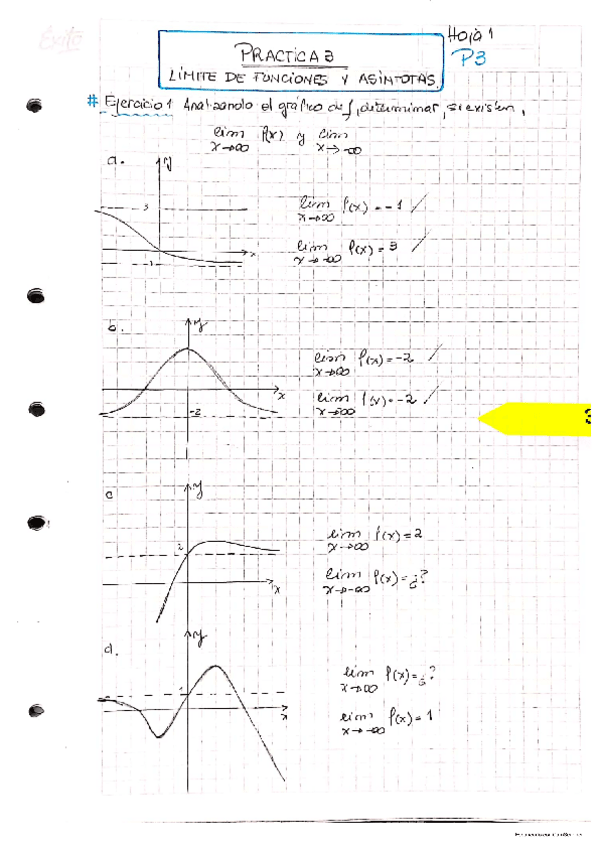 Éxito
Hoja 1
P3
PRACTICA 3
LÍMITE DE FUNCIONES Y ASÍNTOTAS
# Ejercicio 1 Analizando el gráfico de f, determinar, si existen,
lim f(x) y lim
x→∞ x→-∞
a.
y
3
x
-1
lim f(x)=-1 /
x→∞
lim f(x)=3 /
x→-∞
b.
y
x
-2
lim f(x)=-2 /
x→∞
lim f(x)=-2 /
x→∞
3
c
y
2
x
lim f(x)=2
x→∞
lim f(x)=¿?
x→-∞
d.
y
1
x
lim f(x)=¿?
x→∞
lim f(x)=1
x→-∞